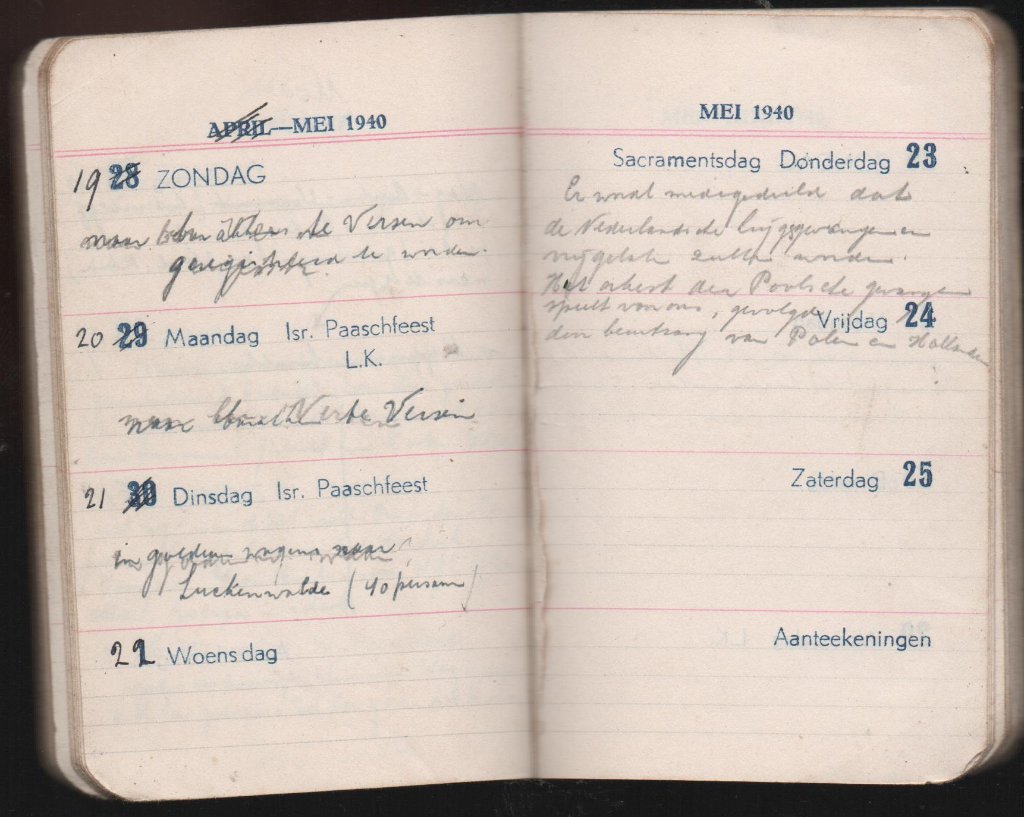 APRIL—MEI 1940
19 28 ZONDAG
naar te Versen om
te worden.
20 29 Maandag Isr. Paaschfeest
L.K.
naar Versen
21 30 Dinsdag Isr. Paaschfeest
in goederen wagens naar
Luckenwalde (40 personen)
22 1 Woensdag
MEI 1940
Sacramentsdag Donderdag 23
Er word medegedeeld dat
de Nederlandsche krijgsgevangenen
vrijgelaten zullen worden.
Het orkest der Poolsche gevangen
speelt voor ons, gevolgd
Vrijdag 24
door beurtzang van Polen en Hollanders
Zaterdag 25
Aanteekeningen